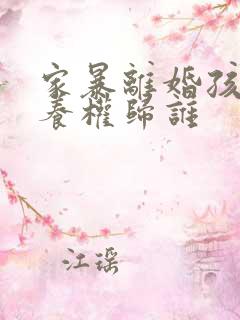 家暴離婚孩
養權歸誰
江瑶